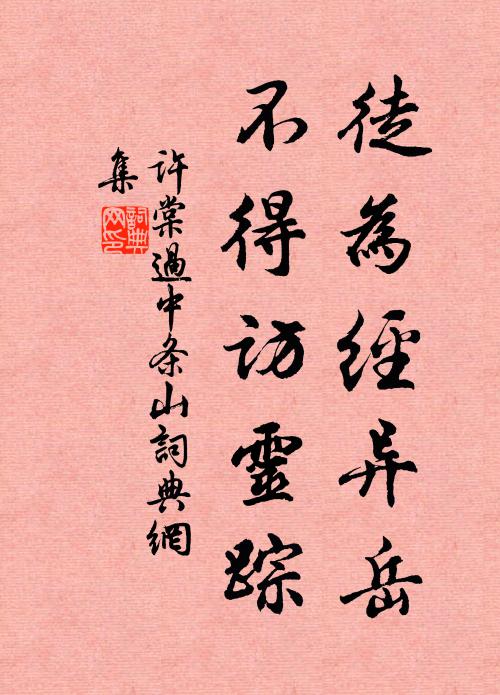 徒為經异岳
不得訪靈踪
許棠過中条山詞典網
集
詞典网印